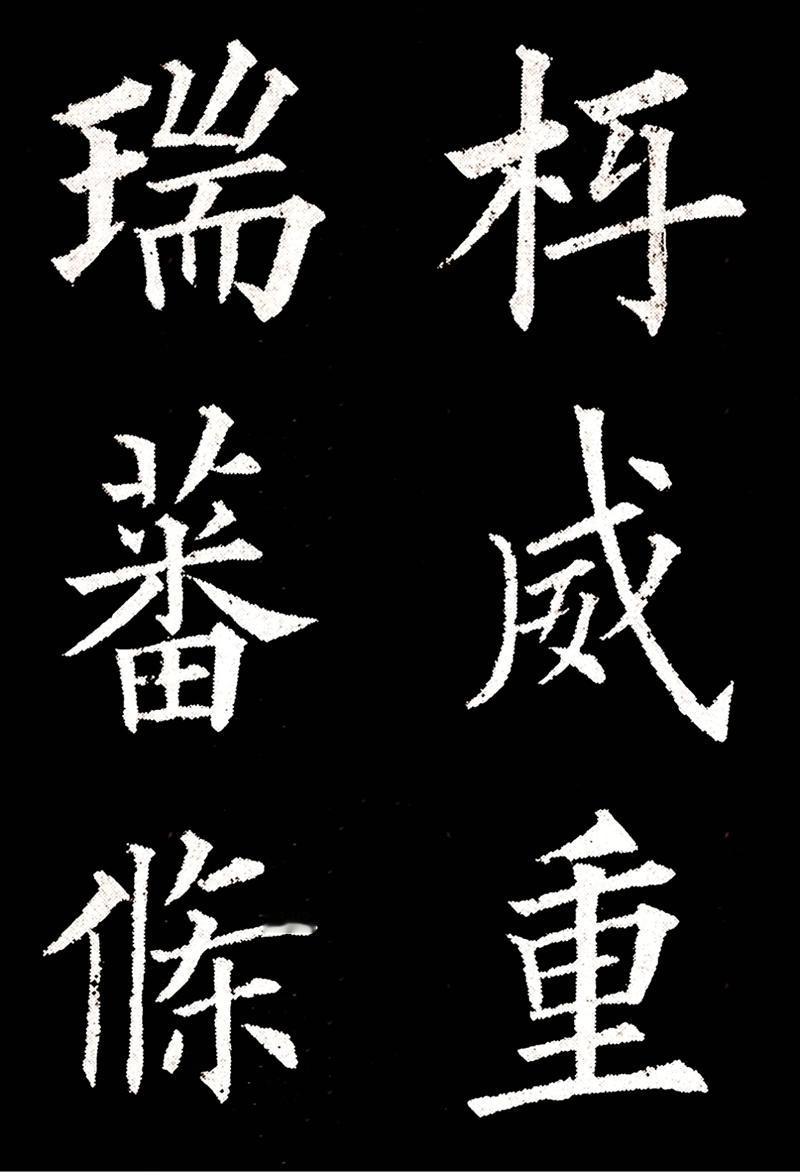 枒威重
瑞蕃條